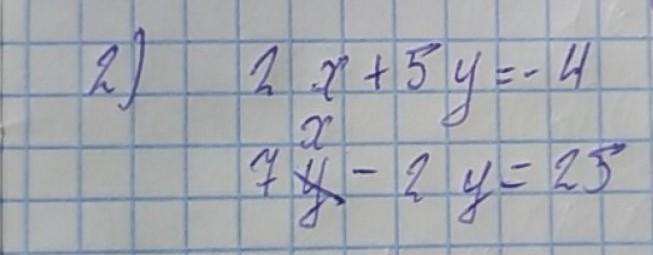 2) 2x+5y=-4
7x-2y=25